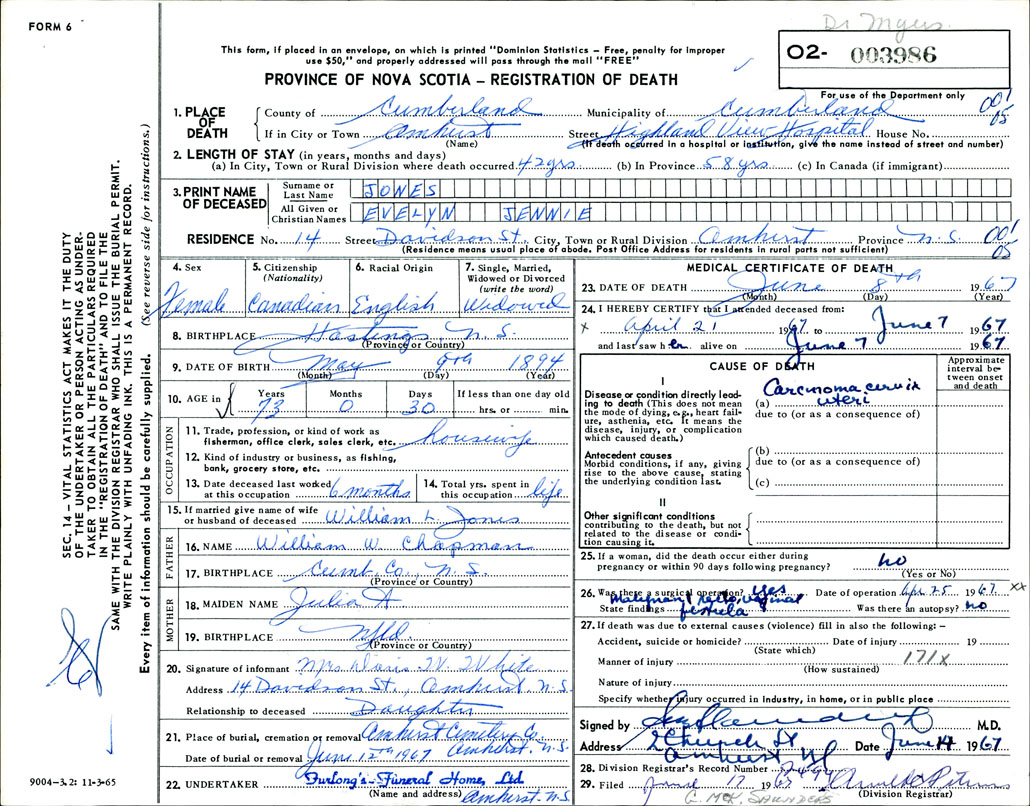 FORM 6
Dr Myers
This form, if placed in an envelope, on which is printed "Dominion Statistics – Free, penalty for improper
use $50," and properly addressed will pass through the mail "FREE"
PROVINCE OF NOVA SCOTIA – REGISTRATION OF DEATH
O2- 003986
For use of the Department only
001
05
1. PLACE OF DEATH
County of Cumberland Municipality of Cumberland
If in City or Town Amherst Street Highland View Hospital House No.
(Name) (If death occurred in a hospital or institution, give the name instead of street and number)
2. LENGTH OF STAY (in years, months and days)
(a) In City, Town or Rural Division where death occurred 42 yrs. (b) In Province 58 yrs (c) In Canada (if immigrant)
3. PRINT NAME OF DECEASED
Surname or Last Name JONES
All Given or Christian Names EVELYN JENNIE
RESIDENCE No. 14 Street Davidson St. City, Town or Rural Division Amherst Province N.S.
(Residence means usual place of abode. Post Office Address for residents in rural parts not sufficient)
001
05
4. Sex Female
5. Citizenship (Nationality) Canadian
6. Racial Origin English
7. Single, Married, Widowed or Divorced (write the word) Widowed
8. BIRTHPLACE Hastings N.S.
(Province or Country)
9. DATE OF BIRTH May 9th 1894
(Month) (Day) (Year)
10. AGE in Years 73 Months 0 Days 30 If less than one day old hrs. or min.
OCCUPATION
11. Trade, profession, or kind of work as fisherman, office clerk, sales clerk, etc. housewife
12. Kind of industry or business, as fishing, bank, grocery store, etc.
13. Date deceased last worked at this occupation 6 months
14. Total yrs. spent in this occupation life
15. If married give name of wife or husband of deceased William L Jones
FATHER
16. NAME William W. Chapman
17. BIRTHPLACE Cumb. Co., N.S.
(Province or Country)
MOTHER
18. MAIDEN NAME Julia A
19. BIRTHPLACE Nfld.
(Province or Country)
20. Signature of informant Mrs W. White
Address 14 Davidson St., Amherst, N.S.
Relationship to deceased Daughter
21. Place of burial, cremation or removal Amherst Cemetery Co.
Amherst, N.S.
Date of burial or removal June 12th 1967
22. UNDERTAKER Furlong's Funeral Home, Ltd
(Name and address) Amherst, N.S.
MEDICAL CERTIFICATE OF DEATH
23. DATE OF DEATH June 8th 1967
(Month) (Day) (Year)
24. I HEREBY CERTIFY that I attended deceased from:
x April 21 1967 to June 7 1967
and last saw her alive on June 7 1967
CAUSE OF DEATH
Approximate interval between onset and death
I
Disease or condition directly leading to death (This does not mean the mode of dying, e.g., heart failure, asthenia, etc. It means the disease, injury, or complication which caused death.)
(a) Carcinoma cervix uteri
due to (or as a consequence of)
Antecedent causes
Morbid conditions, if any, giving rise to the above cause, stating the underlying condition last.
(b)
due to (or as a consequence of)
(c)
II
Other significant conditions contributing to the death, but not related to the disease or condition causing it.
25. If a woman, did the death occur either during pregnancy or within 90 days following pregnancy? no
(Yes or No)
26. Was there a surgical operation? yes Date of operation Apr 25 1967 xx
State findings malignant recto vaginal fistula Was there an autopsy? no
27. If death was due to external causes (violence) fill in also the following: –
Accident, suicide or homicide? Date of injury 19
(State which)
Manner of injury 171X
(How sustained)
Nature of injury
Specify whether injury occurred in industry, in home, or in public place
Signed by M.D.
Address 2 Church St Amherst NS Date June 14 1967
28. Division Registrar's Record Number
29. Filed June 17 1967
(Division Registrar)
G. McK. SAUNDERS
SEC. 14 – VITAL STATISTICS ACT MAKES IT THE DUTY
OF THE UNDERTAKER OR PERSON ACTING AS UNDER-
TAKER TO OBTAIN ALL THE PARTICULARS REQUIRED
IN THE "REGISTRATION OF DEATH" AND TO FILE THE
SAME WITH THE DIVISION REGISTRAR WHO SHALL ISSUE THE BURIAL PERMIT.
WRITE PLAINLY WITH UNFADING INK. THIS IS A PERMANENT RECORD.
Every item of information should be carefully supplied. (See reverse side for instructions.)
9004–3.2: 11-3-65